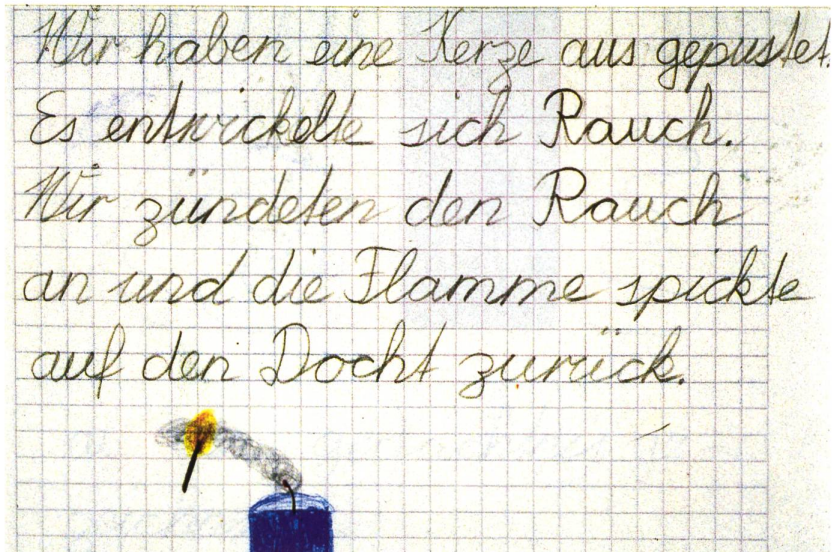 Wir haben eine Kerze aus gepustet.
Es entwickelte sich Rauch.
Wir zündeten den Rauch
an und die Flamme spickte
auf den Docht zurück.